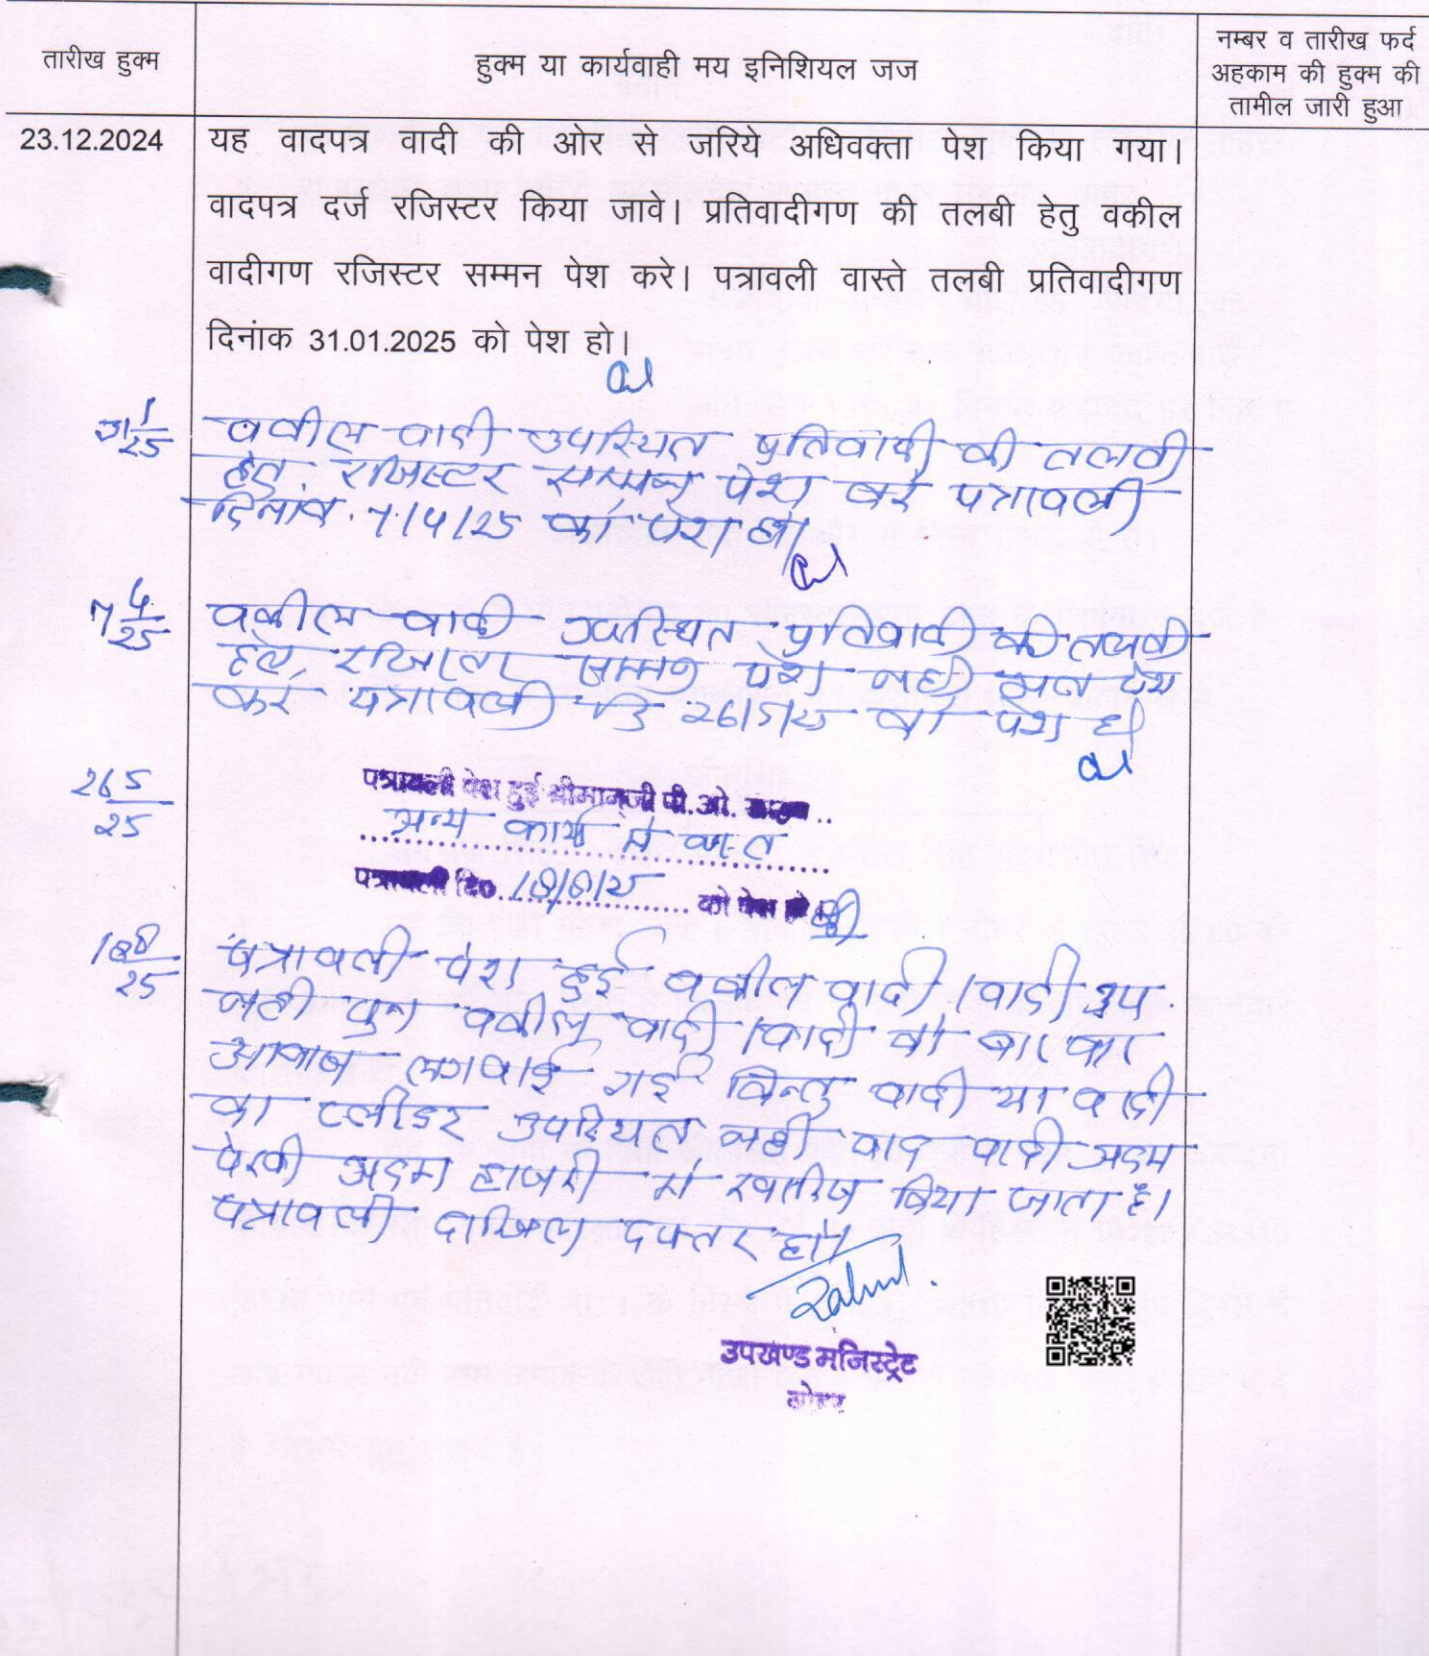 तारीख हुक्म
हुक्म या कार्यवाही मय इनिशियल जज
नम्बर व तारीख फर्द
अहकाम की हुक्म की
तामील जारी हुआ
23.12.2024
यह वादपत्र वादी की ओर से जरिये अधिवक्ता पेश किया गया।
वादपत्र दर्ज रजिस्टर किया जावे। प्रतिवादीगण की तलबी हेतु वकील
वादीगण रजिस्टर सम्मन पेश करे। पत्रावली वास्ते तलबी प्रतिवादीगण
दिनांक 31.01.2025 को पेश हो।
31/1/25
वकील वादी उपस्थित प्रतिवादी की तलबी
हेतु रजिस्टर सम्मन पेश करे पत्रावली
दिनांक 7/4/25 को पेश हो
7/4/25
वकील वादी उपस्थित प्रतिवादी की तलबी
हेतु रजिस्टर सम्मन पेश नही पेश
करे पत्रावली दि 26/5/25 को पेश हो
26/5/25
पत्रावली पेश हुई श्रीमान्‌जी पी.ओ.
अन्य कार्य मे व्यस्त
पत्रावली दि० 18/8/25 को पेश हो
18/8/25
पत्रावली पेश हुई वकील वादी/वादी उप.
नही पुन वकील वादी/वादी को बार बार
आवाज लगवाई गई किन्तु वादी या वादी
का प्लीडर उपस्थित नही वाद वादी अदम
पैरवी अदम हाजरी मे खारिज किया जाता है।
पत्रावली दाखिल दफ्तर हो।
उपखण्ड मजिस्ट्रेट
नोहर